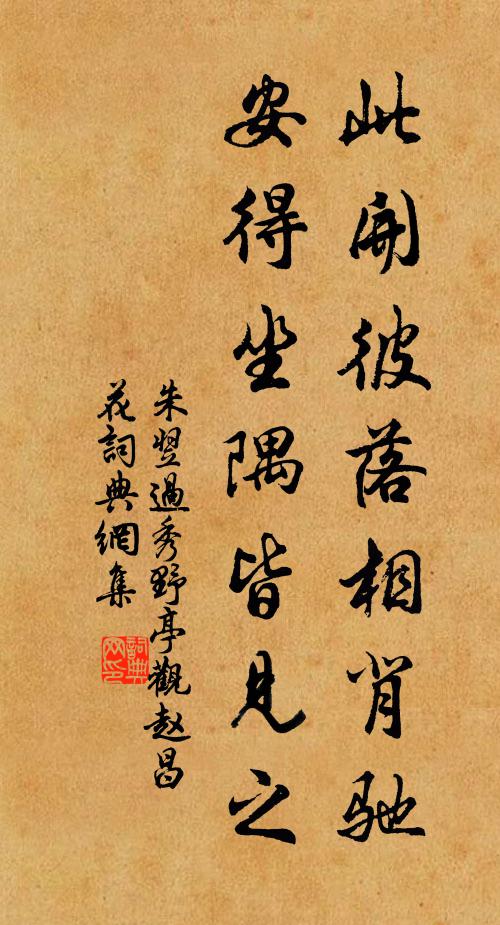 此開彼落相背馳
安得坐隅皆見之
朱翌過秀野亭觀赵昌
花詞典網集
詞典网印